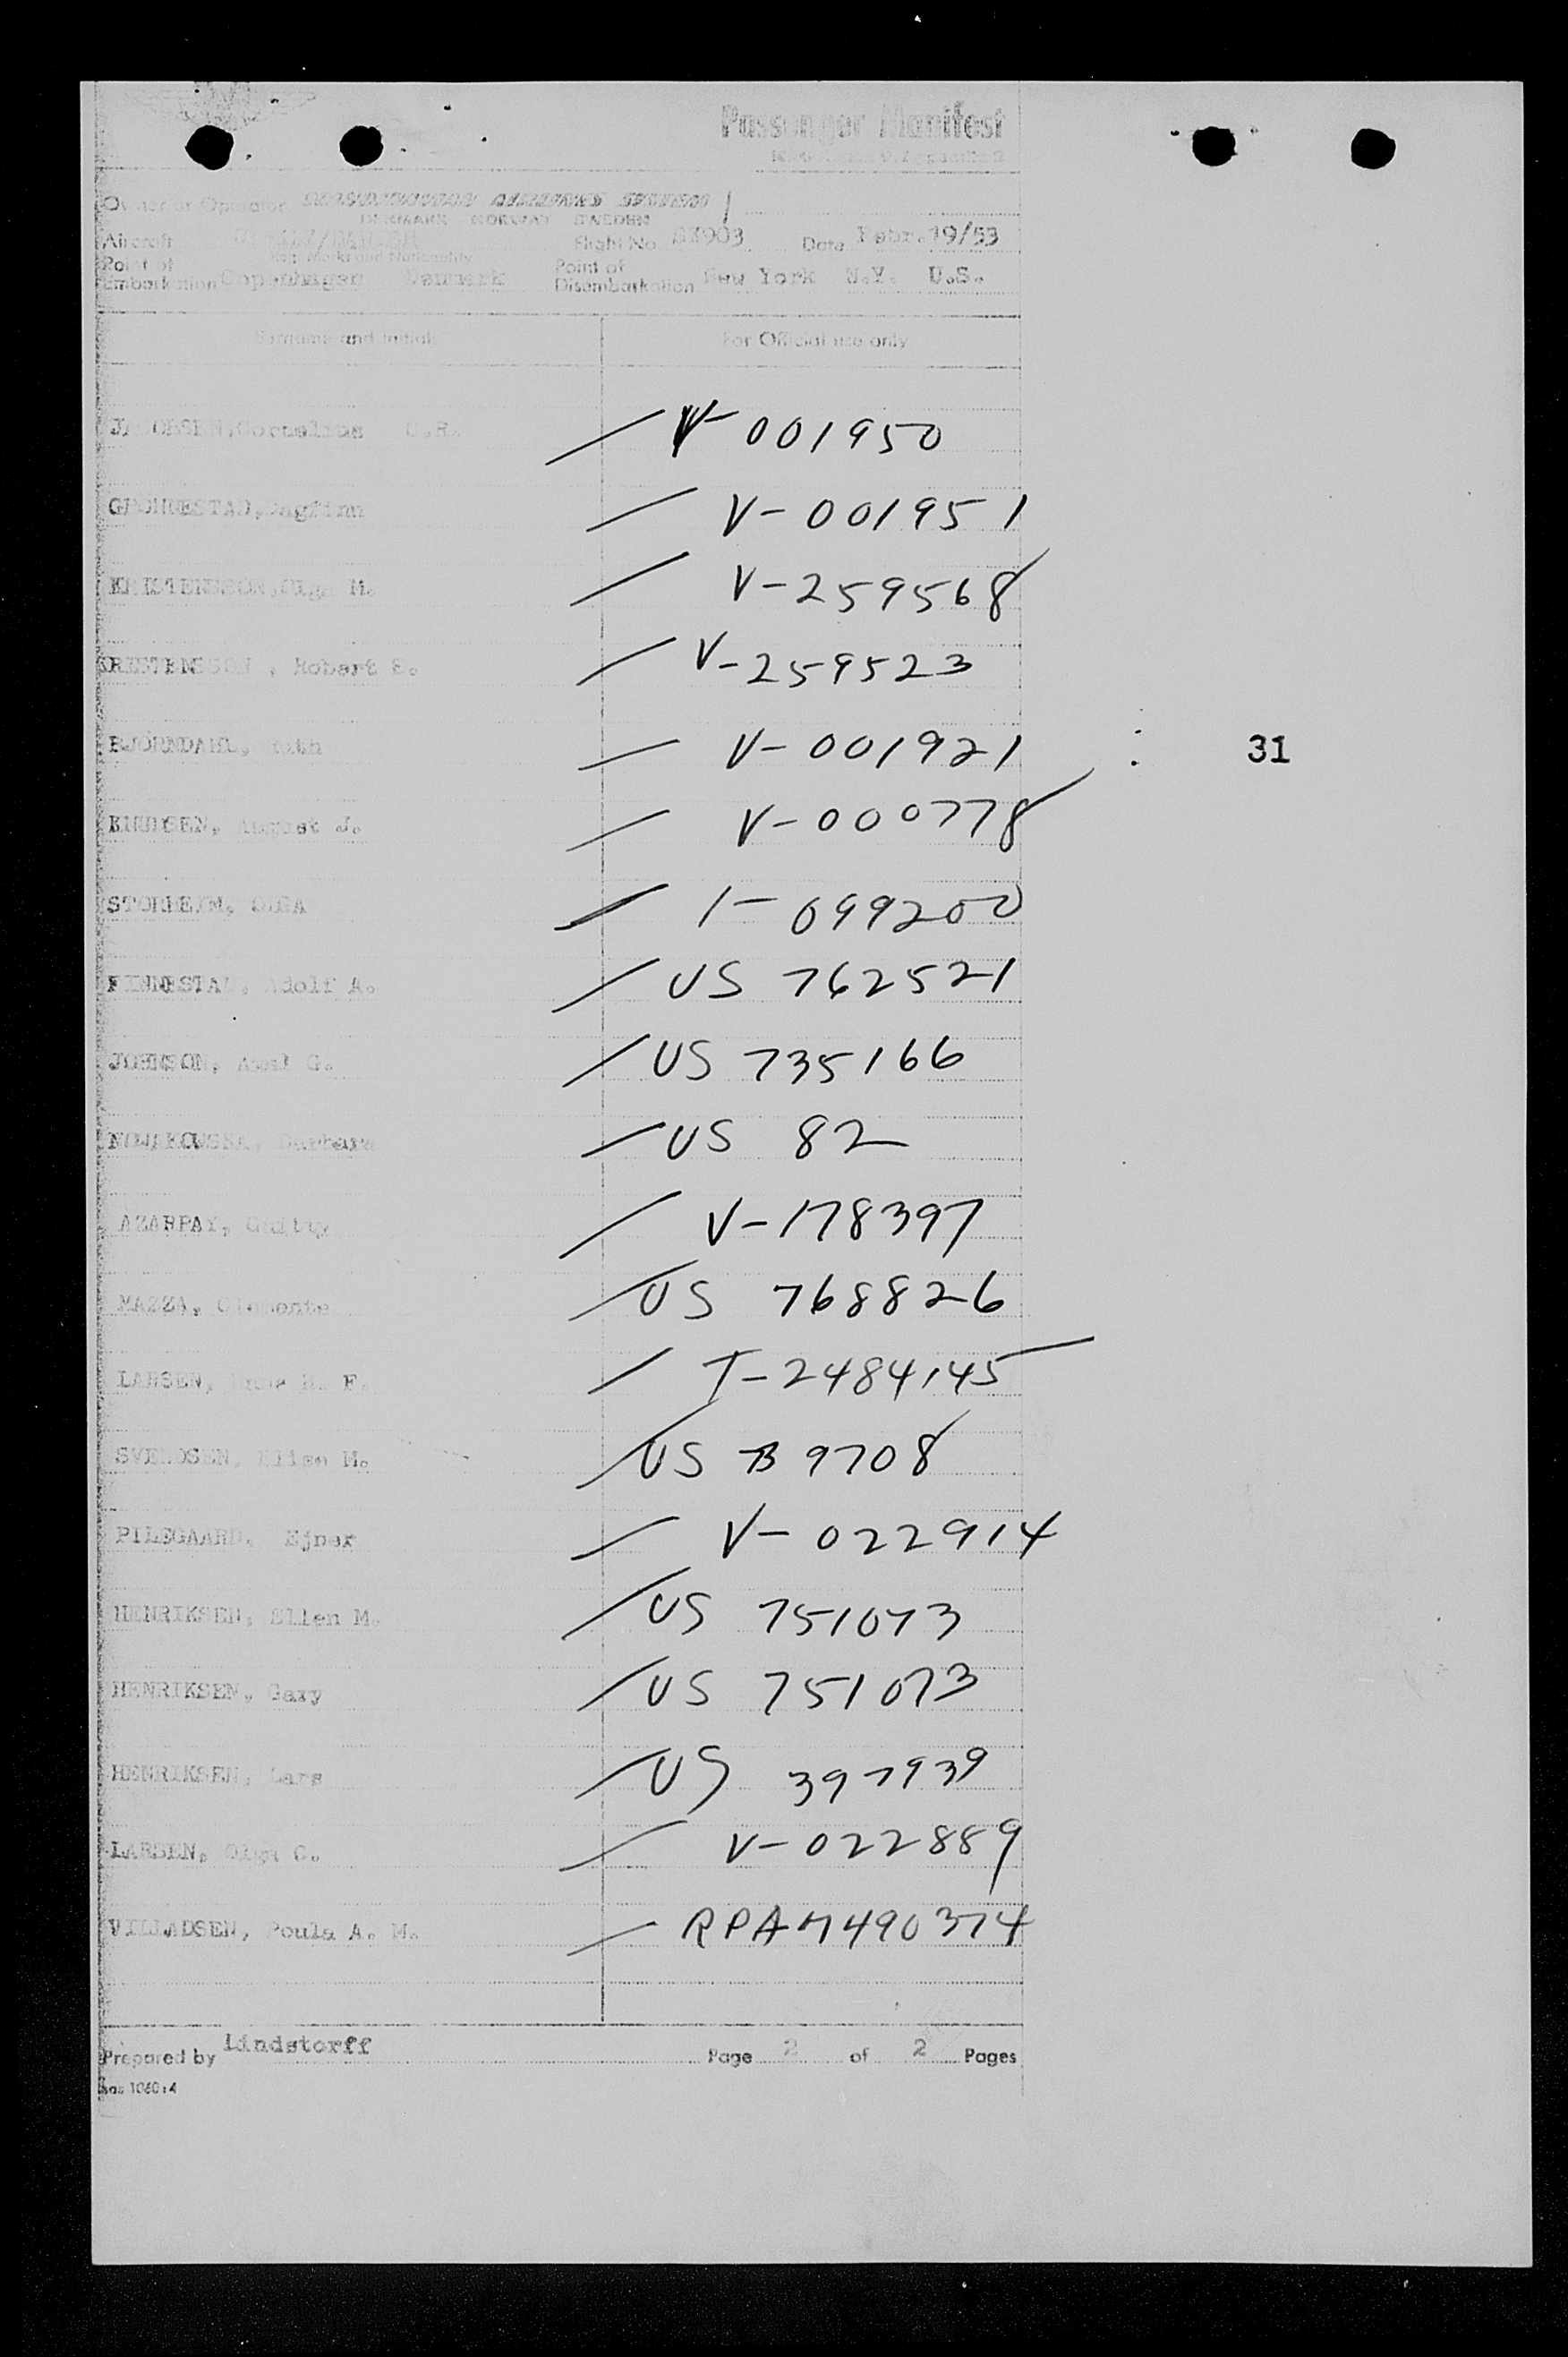 Passenger Manifest
Owner or Operator SCANDINAVIAN AIRLINES SYSTEM
DENMARK NORWAY SWEDEN
Aircraft Flight No. SK903 Date Febr. 19/53
Point of Embarkation Copenhagen Denmark Point of Disembarkation New York N.Y. U.S.
Surname and Initials For Official use only
JACOBSEN, Cornelius V-001950
V-001951
M. V-259568
Robert E. V-259523
BJORNDAHL, Ruth V-001921
31
KNUDSEN, August J. V-000778
STORHEIM, 1-099200
FINNESTAD, Adolf A. US 762521
JOHNSON, Axel G. US 735166
NOWAKOWSKA, Barbara US 82
AZARPAY, V-178397
MAZZA, Clemente US 768826
LARSEN, F. T-2484145
SVENDSEN, M. US 9708
PILEGAARD, Ejner V-022914
HENRIKSEN, Ellen M. US 751073
HENRIKSEN, Gary US 751073
HENRIKSEN, Lars US 397939
LARSEN, Olga C. V-022889
VILLADSEN, Poula A. M. RPA 7490374
Prepared by Lindstorff Page 2 of 2 Pages
sas 1060:4